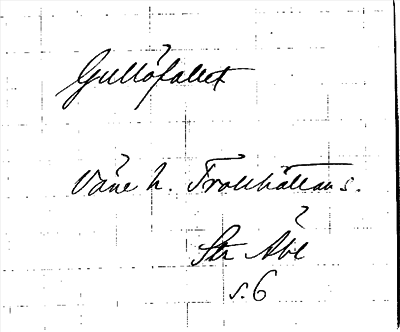 Gullöfallet
Väne h. Trollhättans s.
Str Åbl
s. 6